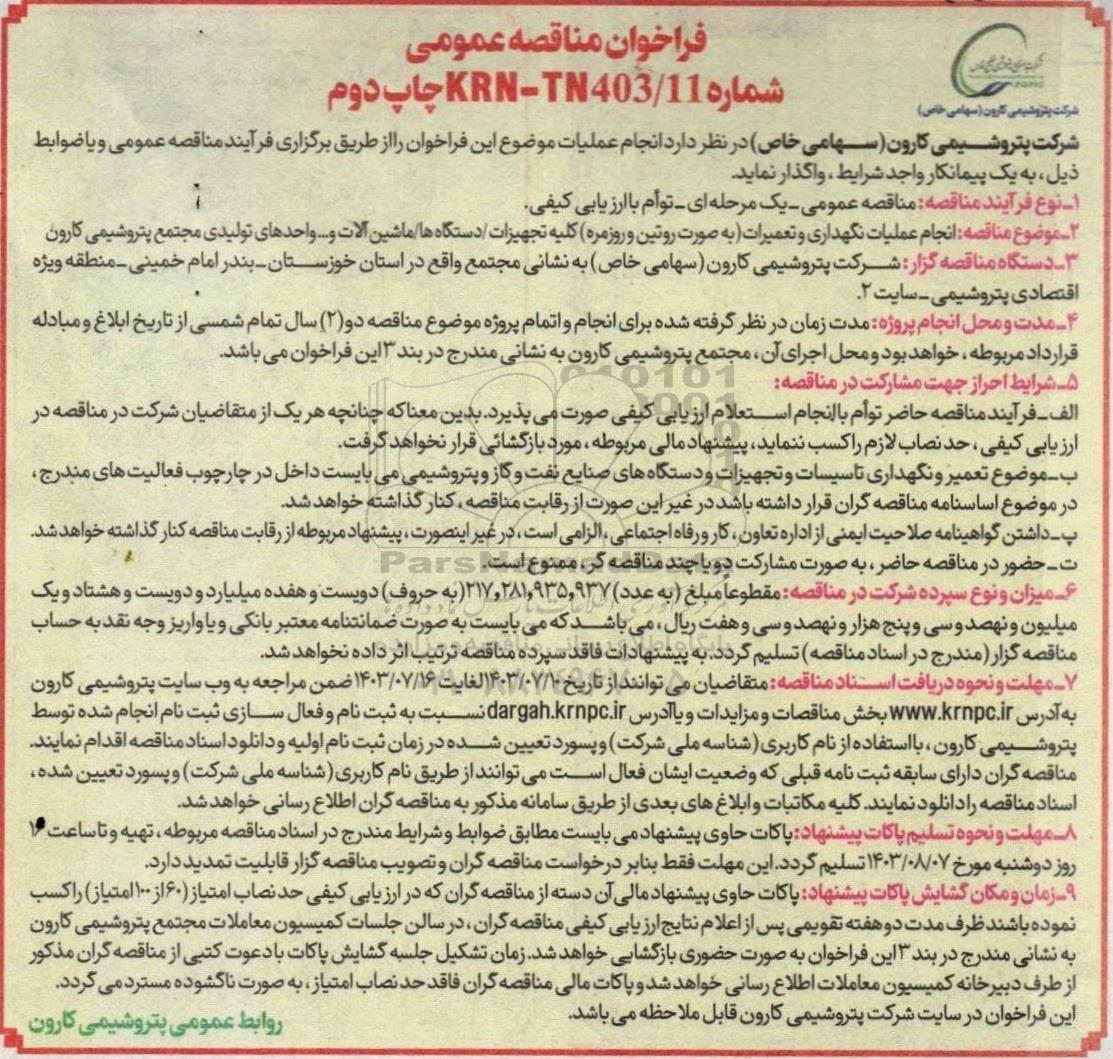 فراخوان مناقصه عمومی
شماره KRN-TN403/11 چاپ دوم
شرکت پتروشیمی کارون (سهامی خاص)
شرکت پتروشیمی کارون (سهامی خاص) در نظر دارد انجام عملیات موضوع این فراخوان را از طریق برگزاری فرآیند مناقصه عمومی و با ضوابط
ذیل، به یک پیمانکار واجد شرایط، واگذار نماید.
۱ـ نوع فرآیند مناقصه: مناقصه عمومی ـ یک مرحله ای ـ توأم با ارزیابی کیفی.
۲ـ موضوع مناقصه: انجام عملیات نگهداری و تعمیرات (به صورت روتین و روزمره) کلیه تجهیزات /دستگاه ها/ماشین آلات و... واحدهای تولیدی مجتمع پتروشیمی کارون
۳ـ دستگاه مناقصه گزار: شرکت پتروشیمی کارون (سهامی خاص) به نشانی مجتمع واقع در استان خوزستان ـ بندر امام خمینی ـ منطقه ویژه
اقتصادی پتروشیمی ـ سایت ۲.
۴ـ مدت و محل انجام پروژه: مدت زمان در نظر گرفته شده برای انجام و اتمام پروژه موضوع مناقصه دو (۲) سال تمام شمسی از تاریخ ابلاغ و مبادله
قرارداد مربوطه، خواهد بود و محل اجرای آن، مجتمع پتروشیمی کارون به نشانی مندرج در بند ۳ این فراخوان می باشد.
۵ـ شرایط احراز جهت مشارکت در مناقصه:
الف ـ فرآیند مناقصه حاضر توأم با انجام استعلام ارزیابی کیفی صورت می پذیرد. بدین معنا که چنانچه هر یک از متقاضیان شرکت در مناقصه در
ارزیابی کیفی، حد نصاب لازم را کسب ننماید، پیشنهاد مالی مربوطه، مورد بازگشائی قرار نخواهد گرفت.
ب ـ موضوع تعمیر و نگهداری تاسیسات و تجهیزات و دستگاه های صنایع نفت و گاز و پتروشیمی می بایست داخل در چارچوب فعالیت های مندرج،
در موضوع اساسنامه مناقصه گران قرار داشته باشد در غیر این صورت از رقابت مناقصه، کنار گذاشته خواهد شد.
پ ـ داشتن گواهینامه صلاحیت ایمنی از اداره تعاون، کار و رفاه اجتماعی، الزامی است، در غیر اینصورت، پیشنهاد مربوطه از رقابت مناقصه کنار گذاشته خواهد شد.
ت ـ حضور در مناقصه حاضر، به صورت مشارکت دو یا چند مناقصه گر، ممنوع است.
۶ـ میزان و نوع سپرده شرکت در مناقصه: مقطوعاً مبلغ (به عدد) ۲۱۷,۲۸۱,۹۳۵,۹۳۷ (به حروف) دویست و هفده میلیارد و دویست و هشتاد و یک
میلیون و نهصد و سی و پنج هزار و نهصد و سی و هفت ریال، می باشد که می بایست به صورت ضمانتنامه معتبر بانکی و یا واریز وجه نقد به حساب
مناقصه گزار (مندرج در اسناد مناقصه) تسلیم گردد. به پیشنهادات فاقد سپرده مناقصه ترتیب اثر داده نخواهد شد.
۷ـ مهلت و نحوه دریافت اسناد مناقصه: متقاضیان می توانند از تاریخ ۱۴۰۳/۰۷/۱۰ لغایت ۱۴۰۳/۰۷/۱۶ ضمن مراجعه به وب سایت پتروشیمی کارون
به آدرس www.krnpc.ir بخش مناقصات و مزایدات و یا آدرس dargah.krnpc.ir نسبت به ثبت نام و فعال سازی ثبت نام انجام شده توسط
پتروشیمی کارون، با استفاده از نام کاربری (شناسه ملی شرکت) و پسورد تعیین شده در زمان ثبت نام اولیه و دانلود اسناد مناقصه اقدام نمایند.
مناقصه گران دارای سابقه ثبت نامه قبلی که وضعیت ایشان فعال است می توانند از طریق نام کاربری (شناسه ملی شرکت) و پسورد تعیین شده،
اسناد مناقصه را دانلود نمایند. کلیه مکاتبات و ابلاغ های بعدی از طریق سامانه مذکور به مناقصه گران اطلاع رسانی خواهد شد.
۸ـ مهلت و نحوه تسلیم پاکات پیشنهاد: پاکات حاوی پیشنهاد می بایست مطابق ضوابط و شرایط مندرج در اسناد مناقصه مربوطه، تهیه و تا ساعت
روز دوشنبه مورخ ۱۴۰۳/۰۸/۰۷ تسلیم گردد. این مهلت فقط بنابر درخواست مناقصه گران و تصویب مناقصه گزار قابلیت تمدید دارد.
۹ـ زمان و مکان گشایش پاکات پیشنهاد: پاکات حاوی پیشنهاد مالی آن دسته از مناقصه گران که در ارزیابی کیفی حد نصاب امتیاز (۶۰ از ۱۰۰ امتیاز) را کسب
نموده باشند ظرف مدت دو هفته تقویمی پس از اعلام نتایج ارزیابی کیفی مناقصه گران، در سالن جلسات کمیسیون معاملات مجتمع پتروشیمی کارون
به نشانی مندرج در بند ۳ این فراخوان به صورت حضوری بازگشایی خواهد شد. زمان تشکیل جلسه گشایش پاکات با دعوت کتبی از مناقصه گران مذکور
از طرف دبیرخانه کمیسیون معاملات اطلاع رسانی خواهد شد و پاکات مالی مناقصه گران فاقد حد نصاب امتیاز، به صورت ناگشوده مسترد می گردد.
این فراخوان در سایت شرکت پتروشیمی کارون قابل ملاحظه می باشد.
روابط عمومی پتروشیمی کارون